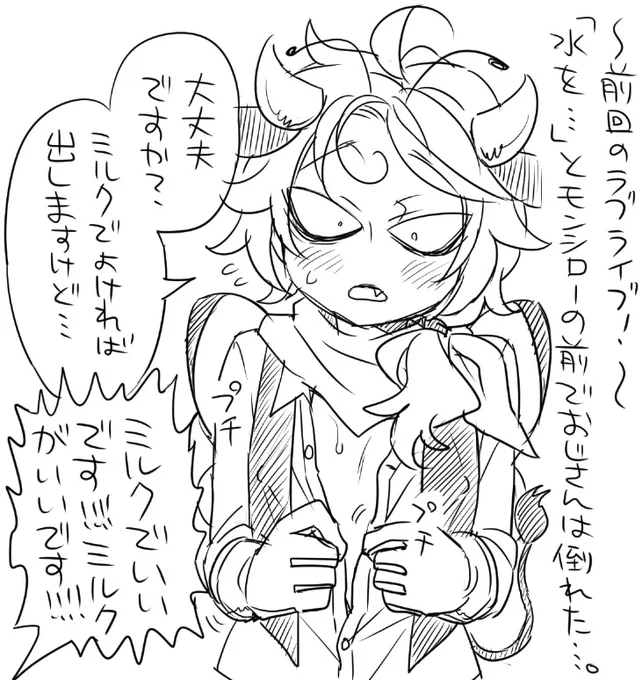 ～前回のラブライブ!～
「水を…」とモンシローの前でおじさんは倒れた…。
大丈夫
ですか?、
ミルクでよければ
出しますけど…
プチ
プチ
ミルクでいい
です!!!ミルク
がいいです!!!!